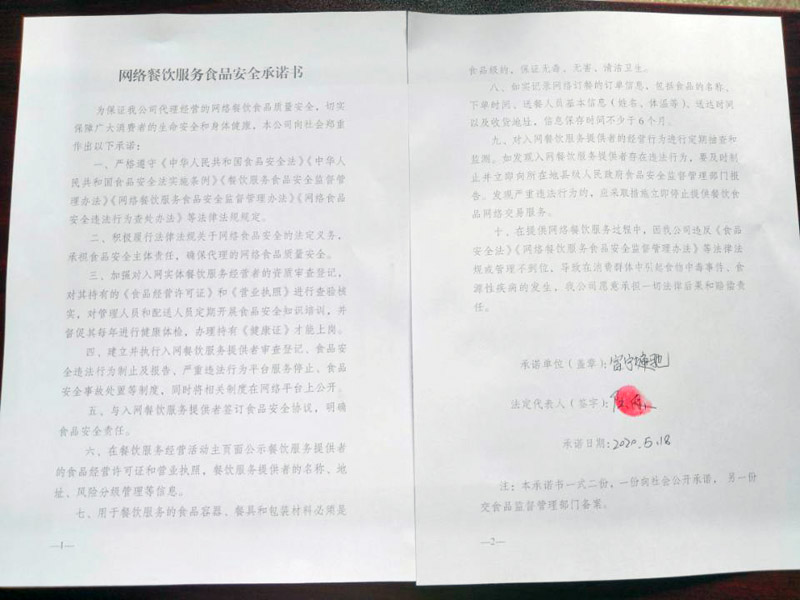 网络餐饮服务食品安全承诺书
为保证我公司代理经营的网络餐饮食品质量安全，切实
保障广大消费者的生命安全和身体健康，本公司向社会郑重
作出以下承诺：
一、严格遵守《中华人民共和国食品安全法》《中华人
民共和国食品安全法实施条例》《餐饮服务食品安全监督管
理办法》《网络餐饮服务食品安全监督管理办法》《网络食品
安全违法行为查处办法》等法律法规规定。
二、积极履行法律法规关于网络食品安全的法定义务，
承担食品安全主体责任，确保代理的网络食品质量安全。
三、加强对入网实体餐饮服务经营者的资质审查登记，
对其持有的《食品经营许可证》和《营业执照》进行查验核
实，对管理人员和配送人员定期开展食品安全知识培训，并
督促其每年进行健康体检，办理持有《健康证》才能上岗。
四、建立并执行入网餐饮服务提供者审查登记、食品安
全违法行为制止及报告、严重违法行为平台服务停止、食品
安全事故处置等制度，同时将相关制度在网络平台上公开。
五、与入网餐饮服务提供者签订食品安全协议，明确
食品安全责任。
六、在餐饮服务经营活动主页面公示餐饮服务提供者
的食品经营许可证和营业执照，餐饮服务提供者的名称、地
址、风险分级管理等信息。
七、用于餐饮服务的食品容器、餐具和包装材料必须是
—1—
食品级的，保证无毒、无害、清洁卫生。
八、如实记录网络订餐的订单信息，包括食品的名称、
下单时间、送餐人员基本信息（姓名、体温等）、送达时间
以及收货地址，信息保存时间不少于6个月。
九、对入网餐饮服务提供者的经营行为进行定期抽查和
监测。如发现入网餐饮服务提供者存在违法行为，要及时制
止并立即向所在地县级人民政府食品安全监督管理部门报
告。发现严重违法行为的，应采取措施立即停止提供餐饮食
品网络交易服务。
十、在提供网络餐饮服务过程中，因我公司违反《食品
安全法》《网络餐饮服务食品安全监督管理办法》等法律法
规或管理不到位，导致在消费群体中引起食物中毒事件、食
源性疾病的发生，我公司愿意承担一切法律后果和赔偿责
任。
承诺单位（盖章）：
法定代表人（签字）：
承诺日期：2020.5.18
注：本承诺书一式二份，一份向社会公开承诺，另一份
交食品监督管理部门备案。
—2—